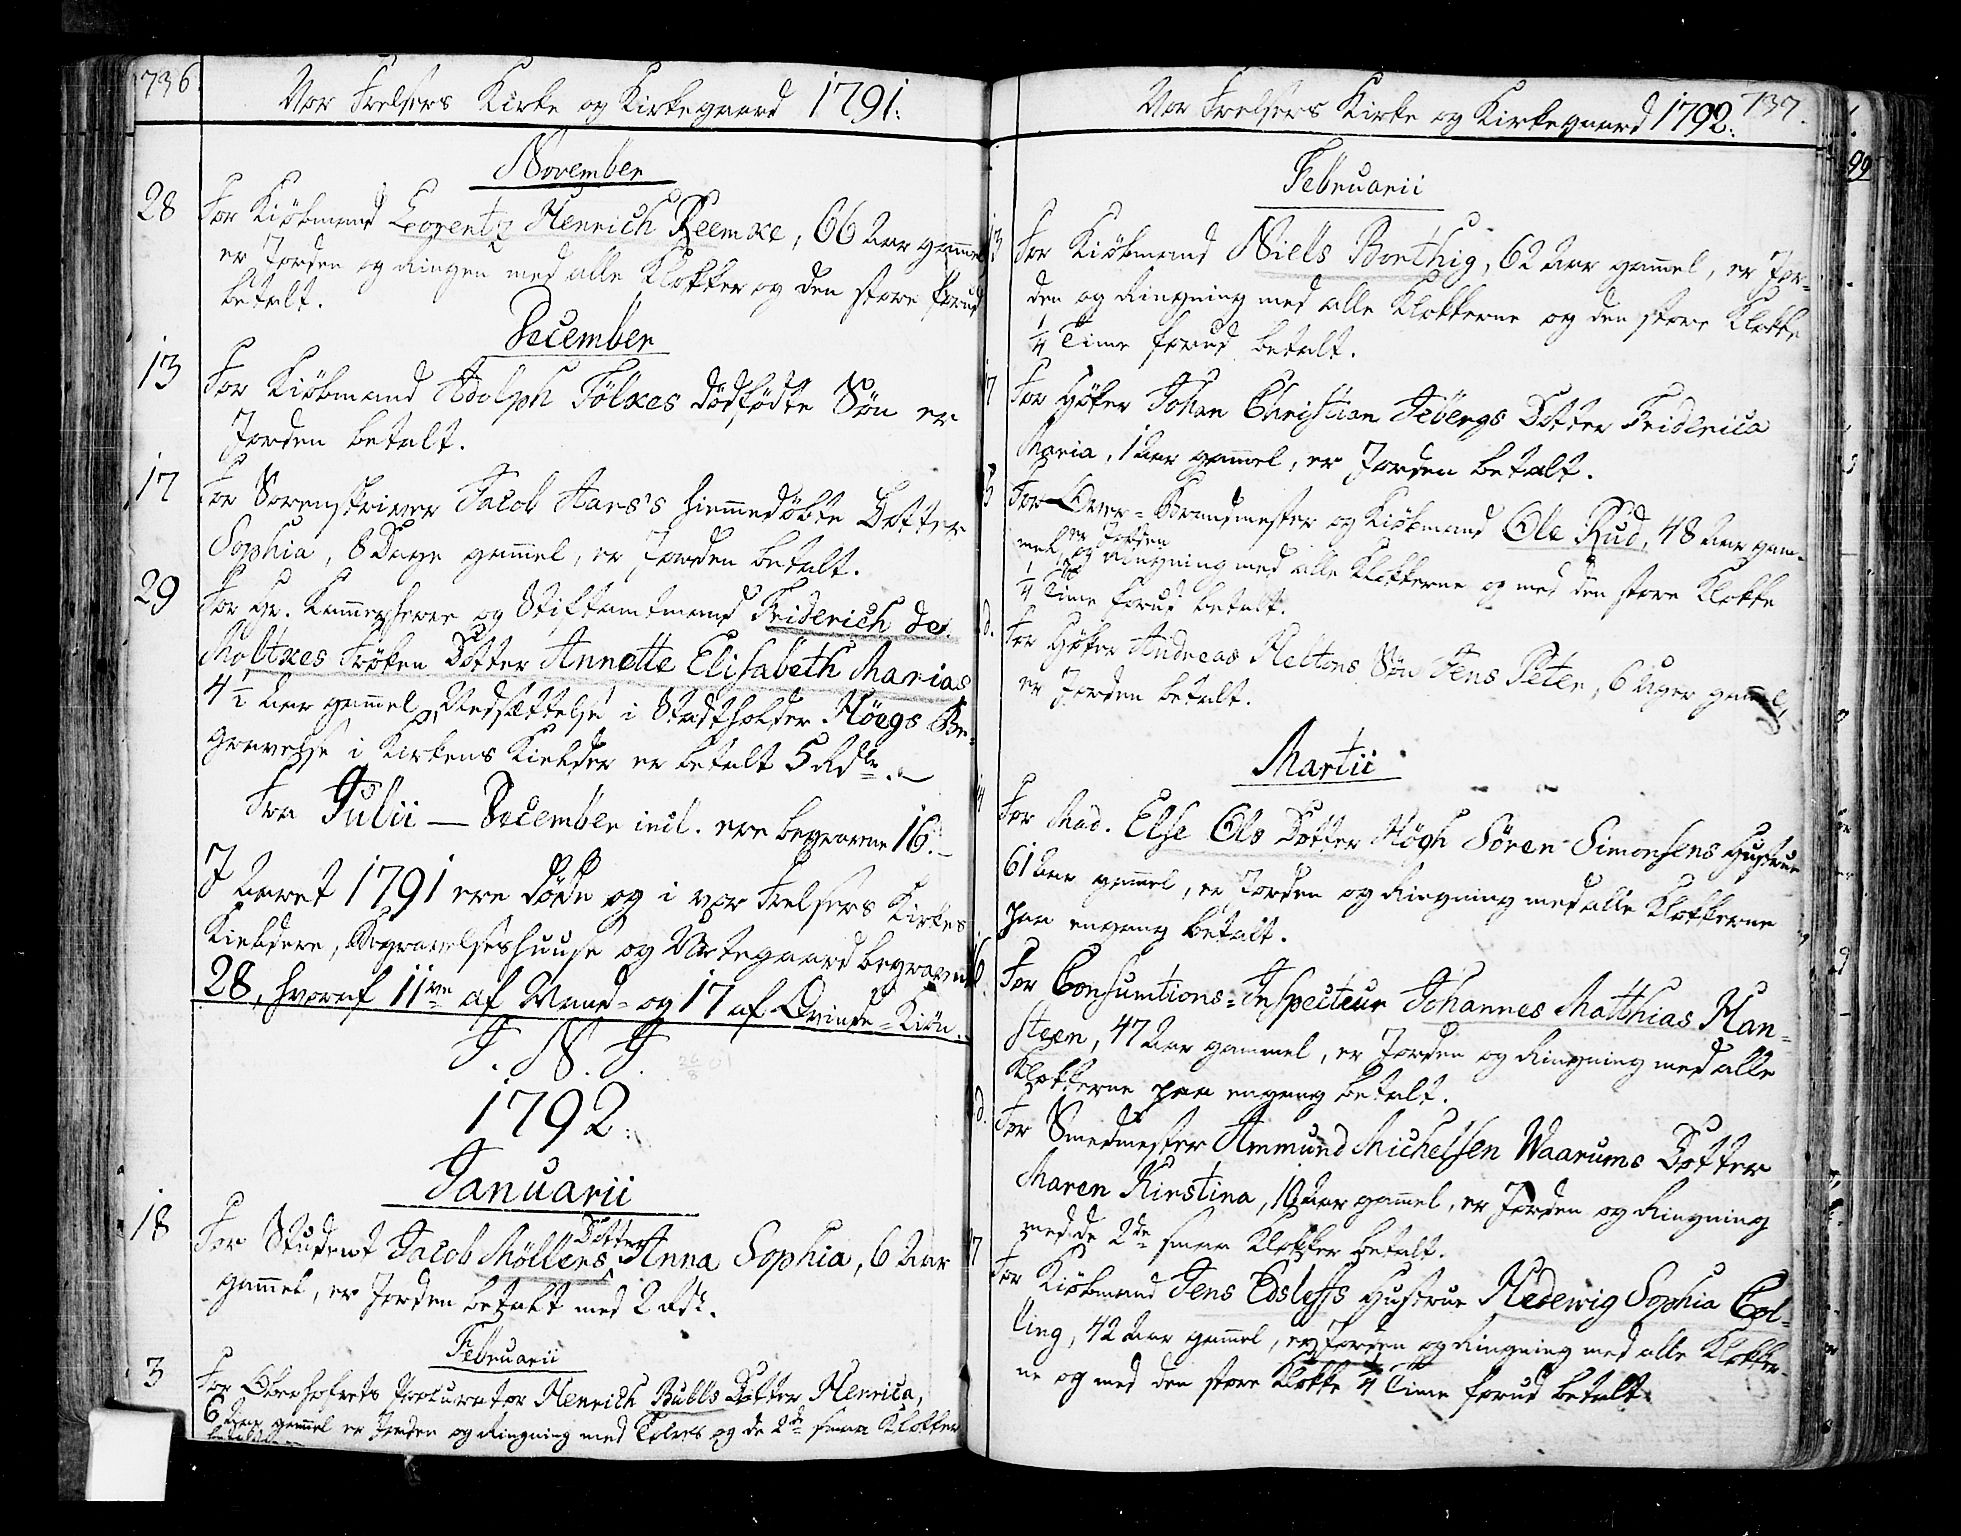 736.
Vor Frelsers Kirke og Kirkegaard 1791.
November
28 For Kiøbmand Lorentz Henrich Reemke, 66 Aar gam̄el
er Jorden og Ringen med alle Klokker og den store forud
betalt.
December
13 For Kiøbmand Adolph Tölkes dödfødte Søn er
Jorden betalt.
17 For Sorenskriver Jacob Aars's hiem̄edøbte Dotter
Sophia, 8 Dage gam̄el, er Jorden betalt.
29 For Hr. Kam̄erherre og Stiftamtmand Friderich de
Moltkes Frøken Dotter Annette Elisabeth Marias
4½ Aar gam̄el, Nedsættelse i Stadtholder Höegs Be-
gravelse i Kirkens Kielder er betalt 5 Rdlr.
Fra Julii — December incl. ere begravne 16.
I Aaret 1791 ere døde og i vor Frelsers Kirkes
Kieldere, Begravelseshuuse og Urtegaard begravne
28, hvoraf 11ve af Mand- og 17 af Qvinde-Kiøn.
J. N. J.
1792.
Januarii
18 For Student Jacob Möllers Dotter Anna Sophia, 6 Aar
gam̄el, er Jorden betalt med 2 Rdr.
Februarii
3 For Oberhofrets Procurator Henrich Bulls Dotter Henrica,
6 Aar gam̄el er Jorden og Ringning med Tolves og de 2de smaa Klokker
betalt
Vor Frelsers Kirke og Kirkegaard 1792. 737.
Februarii
13 For Kiøbmand Niels Borthig, 62 Aar gam̄el, er Jor-
den og Ringning med alle Klokkerne og den store Klokke
¼ Time forud betalt.
17 For Høker Johan Christian Jebergs Dotter Friderica
Maria, 1 Aar gam̄el, er Jorden betalt.
For Over-Brandmester og Kiøbmand Ole Rud, 48 Aar gam-
mel, er Jorden og Ringning med alle Klokkerne og med den store Klokke
¼ Time forud betalt.
d. For Høker Andreas Heltons Søn Jens Peter, 6 Uger gam̄el,
er Jorden betalt.
Martii
For Mad. Else Ols Dotter Högh Sören Simonsens Hustrue
61 Aar gam̄el, er Jorden og Ringning med alle Klokkerne
paa engang betalt.
For Consumtions-Inspecteur Johannes Matthias Han-
steen, 47 Aar gammel, er Jorden og Ringning med alle
Klokkerne paa engang betalt.
d. For Smedmester Ammund Michelsen Waarums Dotter
Maren Kirstina, 10 Aar gam̄el, er Jorden og Ringning
med de 2de smaa Klokker betalt.
For Kiøbmand Jens Edsleffs Hustrue Hedewig Sophia Col-
ling, 42 Aar gam̄el, er Jorden og Ringning med alle Klokker-
ne og med den store Klokke ¼ Time forud betalt.